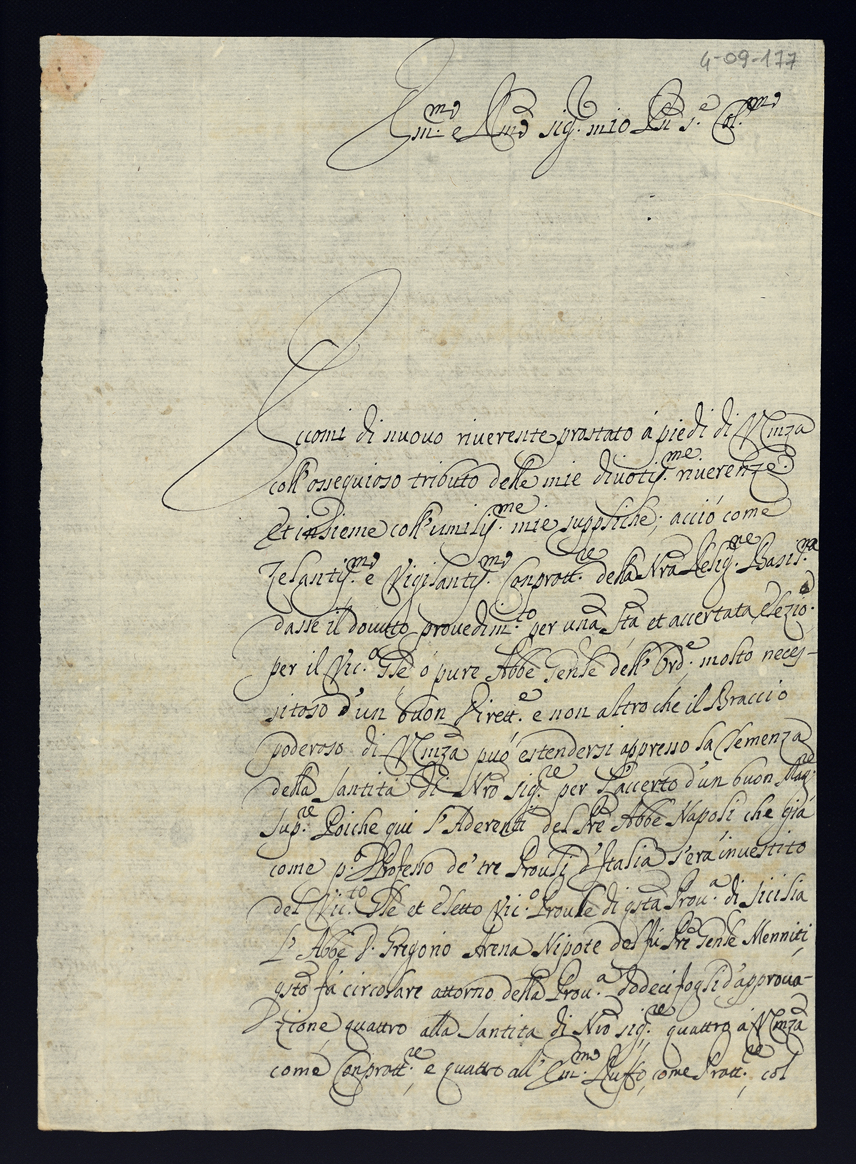 4-09-177
Em.mo e R.mo sig.r mio P.ne s.e Col.mo
Eccomi di nuovo riverente prostato á piedi di V. Em.za
coll'ossequioso tributo delle mie divotis.me riverenze,
et insieme coll'umilis.me mie suppliche, acció come
Zelantis.mo e Vigilantis.mo Conprott.re della Nr̃a Relig.ne Basil.na
dasse il dovuto provedim.to per una sta et accertata elezio.
per il Vic.o Gñle ó pure Abbe Genle dell'Ord.e molto neces-
sitoso d'un buon Dirett.e e non altro ché il Braccio
poderoso di V. Em.za puó estendersi appresso la Clemenza
della Santitá di Nr̃o Sig.re per l'accerto d'un buon Mag.re
Sup.re Poiche qui l'Aderenti del Pr̃e Abbe Napoli che giá
come p.o Professo de' tre Provlj d'Italia s'era investito
del Vic.to Gñle et eletto Vic.o Provle di qsta Prov.a di Sicilia
L'Abbe D. Gregorio Arena Nipote del fú Pr̃e Genle Menniti,
qsto fá circolare attorno della Prov.a dodeci fogli d'approva-
zione, quattro alla Santitá di Nr̃o Sig.re, quattro á V. Em.za
come Conprott.re, e quattro all'Em.mo Ruffo, come Prott.re, col